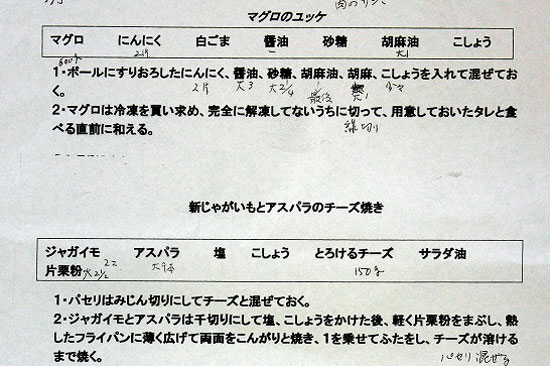 マグロのユッケ
マグロ にんにく 白ごま 醤油 砂糖 胡麻油 こしょう
2片 大1
1・ボールにすりおろしたにんにく、醤油、砂糖、胡麻油、胡麻、こしょうを入れて混ぜてお
く。
2片 大3 大2/4 最後 大1 少々
2・マグロは冷凍を買い求め、完全に解凍してないうちに切って、用意しておいたタレと食
べる直前に和える。
線切り
新じゃがいもとアスパラのチーズ焼き
ジャガイモ アスパラ 塩 こしょう とろけるチーズ サラダ油
片栗粉 大2 1/2 2コ 大9本 150g
1・パセリはみじん切りにしてチーズと混ぜておく。
2・ジャガイモとアスパラは千切りにして塩、こしょうをかけた後、軽く片栗粉をまぶし、熱
したフライパンに薄く広げて両面をこんがりと焼き、1を乗せてふたをし、チーズが溶ける
まで焼く。
パセリ混ぜる